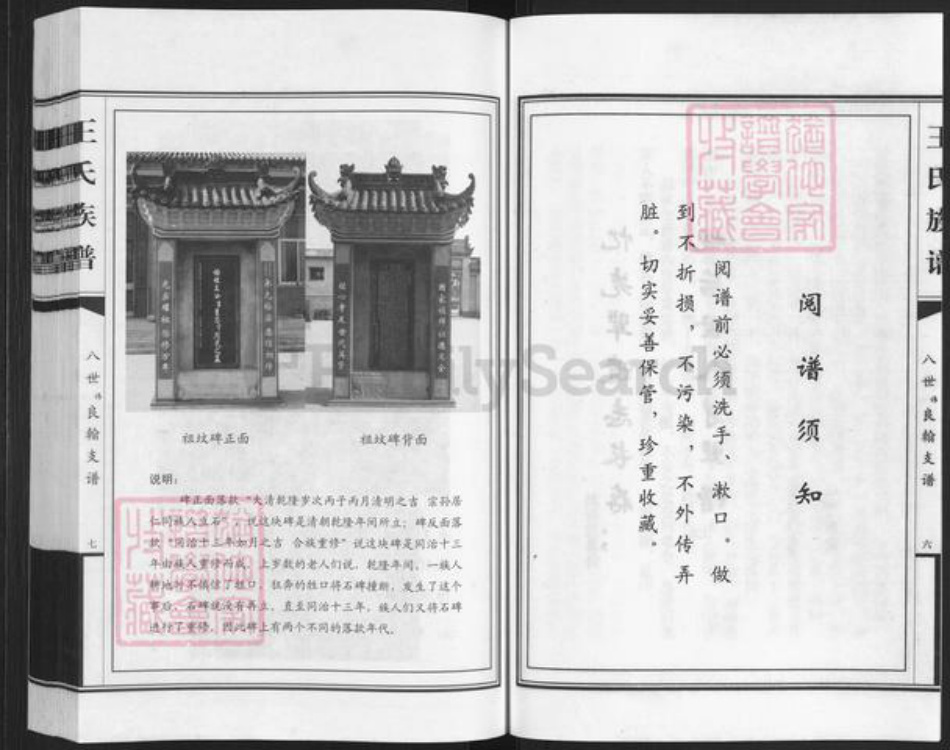 阅谱须知
阅谱前必须洗手、漱口。做
到不折损，不污染，不外传弄
脏。切实妥善保管，珍重收藏。
王氏族谱
八世 良翰支谱
六
王氏族谱
八世 良翰支谱
七
祖坟碑正面
祖坟碑背面
说明：
碑正面落款“大清乾隆岁次丙子丙月清明之吉 宗孙居
仁同族人立石”，说这块碑是清朝乾隆年间所立；碑反面落
款“同治十三年如月之吉 合族重修”说这块碑是同治十三
年由族人重修而成。上岁数的老人们说，乾隆年间，一族人
耕地时不慎惊了牲口，狂奔的牲口将石碑撞断，发生了这个
事后，石碑就没有再立，直至同治十三年，族人们又将石碑
进行了重修，因此碑上有两个不同的落款年代。
猶他家
譜學會
收藏
FamilySearch